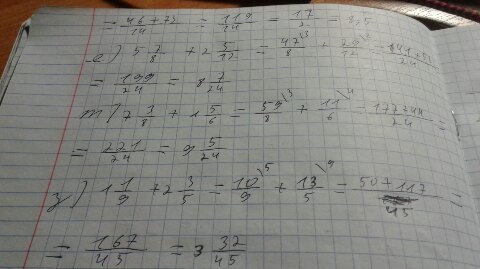 = 46+73/14 = 119/14 = 17/2 = 8,5
е) 5 7/8 + 2 5/12 = 47/8 \3 + 29/12 \2 = 141+5
= 199/24 = 8 7/24
ж) 7 3/8 + 1 5/6 = 59/8 \3 + 11/6 \4 = 177+44/24 =
= 221/24 = 9 5/24
з) 1 1/9 + 2 3/5 = 10/9 \5 + 13/5 \9 = 50+117/45 =
= 167/45 = 3 32/45